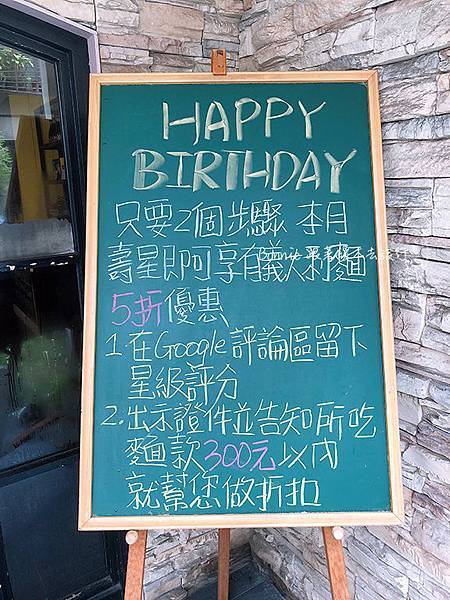 HAPPY
BIRTHDAY
只要2個步驟 本月
壽星即可享有義大利麵
5折優惠
1.在Google評論區留下
星級評分
2.出示證件並告知所吃
麵款300元以內
就幫您做折扣